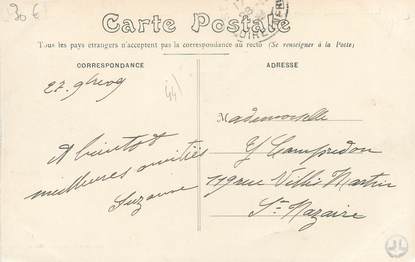 30 €
Carte Postale
Tous les pays étrangers n'acceptent pas la correspondance au recto (Se renseigner à la Poste)
CORRESPONDANCE
ADRESSE
27. 9bre 09
44
A bientôt
meilleures amitiés
Suzanne
Mademoiselle
Y Campredon
119 rue Villès Martin
St Nazaire